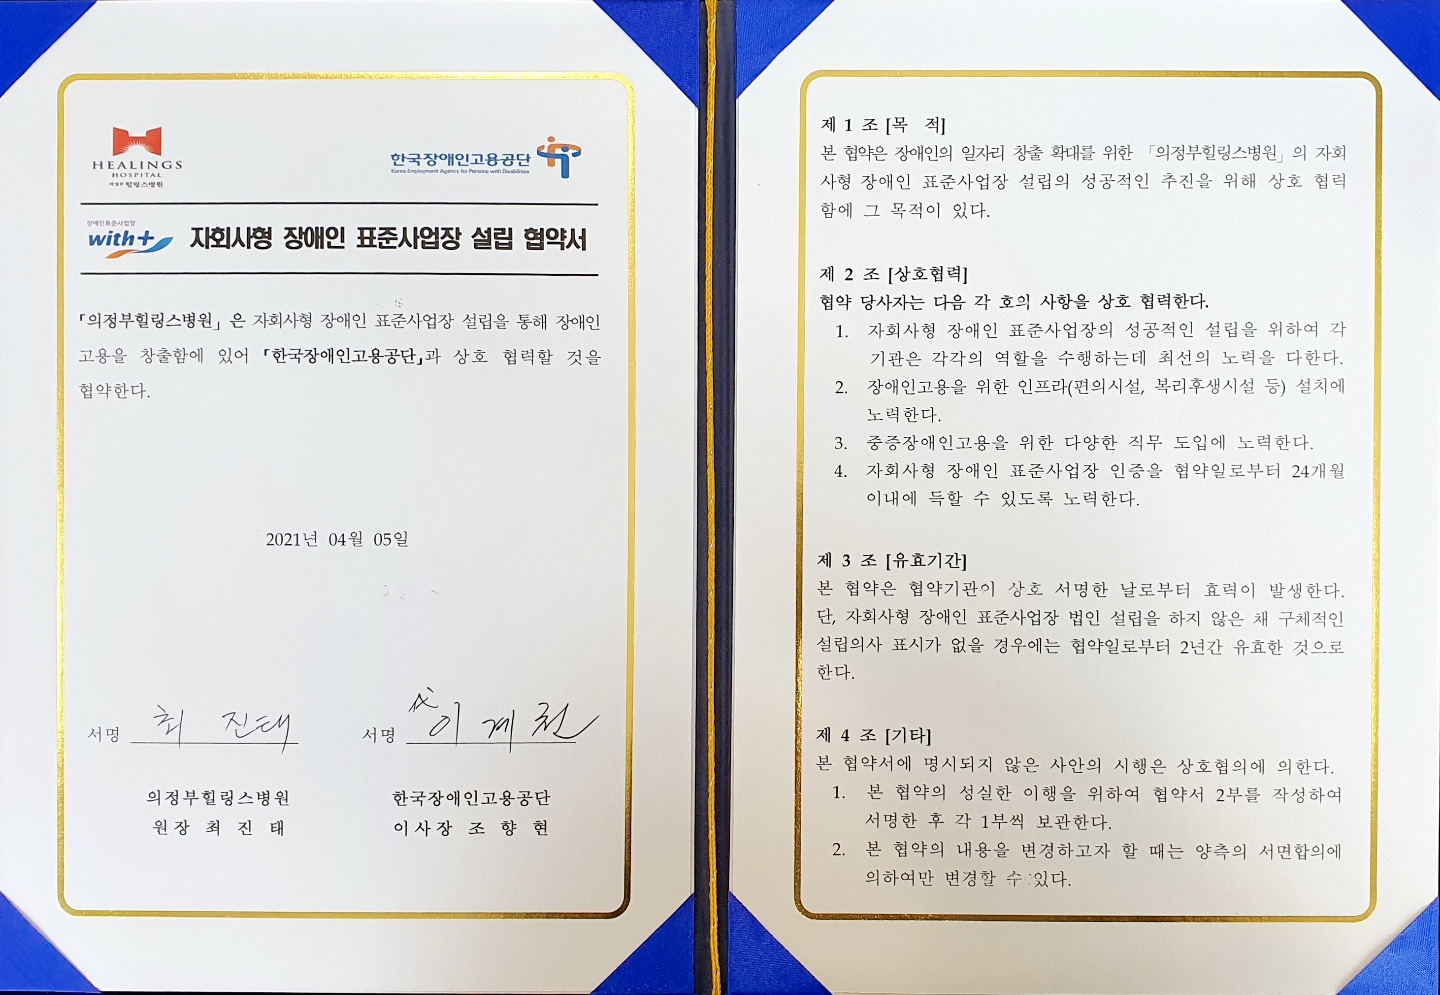 HEALINGS
HOSPITAL
의정부 힐링스병원
한국장애인고용공단
Korea Employment Agency for Persons with Disabilities
장애인표준사업장
with+
자회사형 장애인 표준사업장 설립 협약서
「의정부힐링스병원」은 자회사형 장애인 표준사업장 설립을 통해 장애인
고용을 창출함에 있어 「한국장애인고용공단」과 상호 협력할 것을
협약한다.
2021년 04월 05일
서명 최 진태
서명 代 이 계 천
의정부힐링스병원
원장 최 진 태
한국장애인고용공단
이사장 조 향 현
제 1 조 [목 적]
본 협약은 장애인의 일자리 창출 확대를 위한 「의정부힐링스병원」의 자회
사형 장애인 표준사업장 설립의 성공적인 추진을 위해 상호 협력
함에 그 목적이 있다.
제 2 조 [상호협력]
협약 당사자는 다음 각 호의 사항을 상호 협력한다.
1. 자회사형 장애인 표준사업장의 성공적인 설립을 위하여 각
기관은 각각의 역할을 수행하는데 최선의 노력을 다한다.
2. 장애인고용을 위한 인프라(편의시설, 복리후생시설 등) 설치에
노력한다.
3. 중증장애인고용을 위한 다양한 직무 도입에 노력한다.
4. 자회사형 장애인 표준사업장 인증을 협약일로부터 24개월
이내에 득할 수 있도록 노력한다.
제 3 조 [유효기간]
본 협약은 협약기관이 상호 서명한 날로부터 효력이 발생한다.
단, 자회사형 장애인 표준사업장 법인 설립을 하지 않은 채 구체적인
설립의사 표시가 없을 경우에는 협약일로부터 2년간 유효한 것으로
한다.
제 4 조 [기타]
본 협약서에 명시되지 않은 사안의 시행은 상호협의에 의한다.
1. 본 협약의 성실한 이행을 위하여 협약서 2부를 작성하여
서명한 후 각 1부씩 보관한다.
2. 본 협약의 내용을 변경하고자 할 때는 양측의 서면합의에
의하여만 변경할 수 있다.